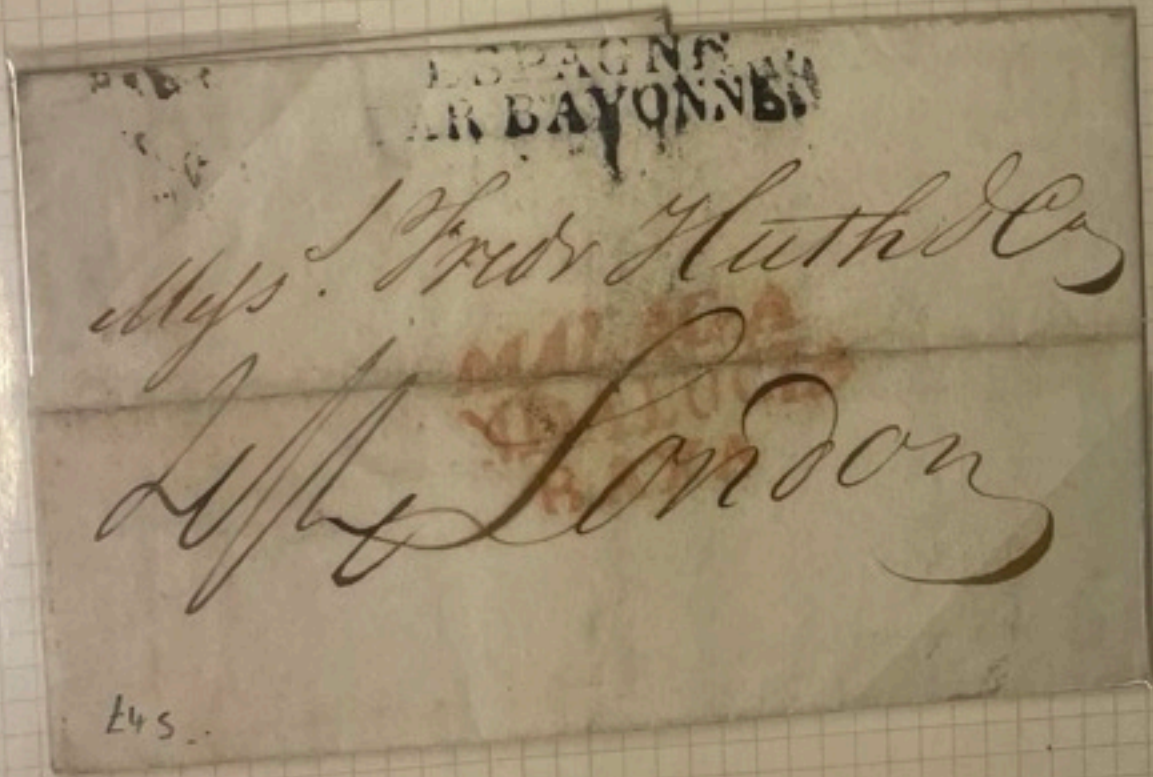 ESPAGNE
PAR BAYONNE
Mess.rs Fredr Huth & Co
MALAGA
London
£4 s